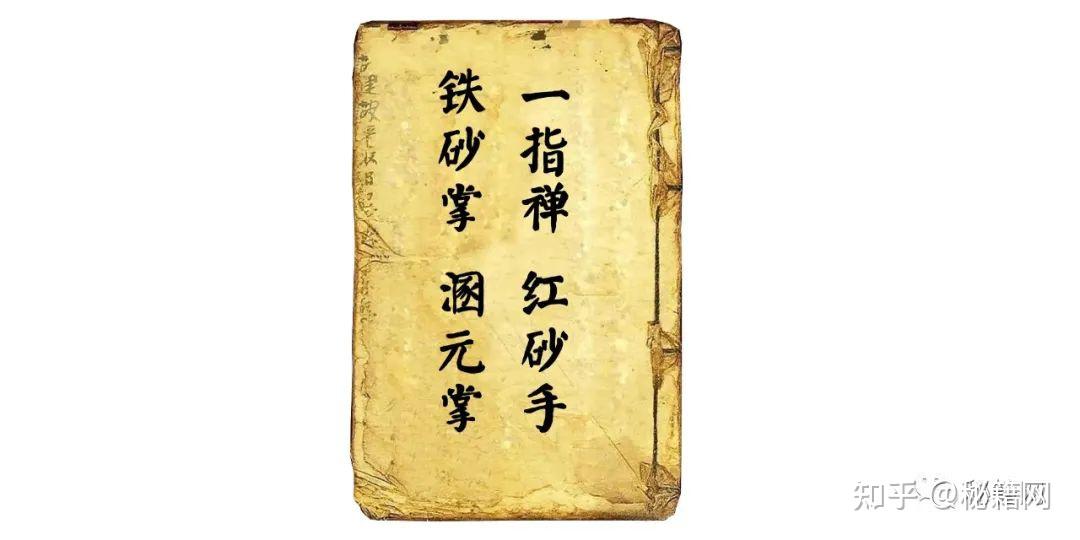 一指禅 红砂手
铁砂掌 溷元掌
知乎 @秘籍网